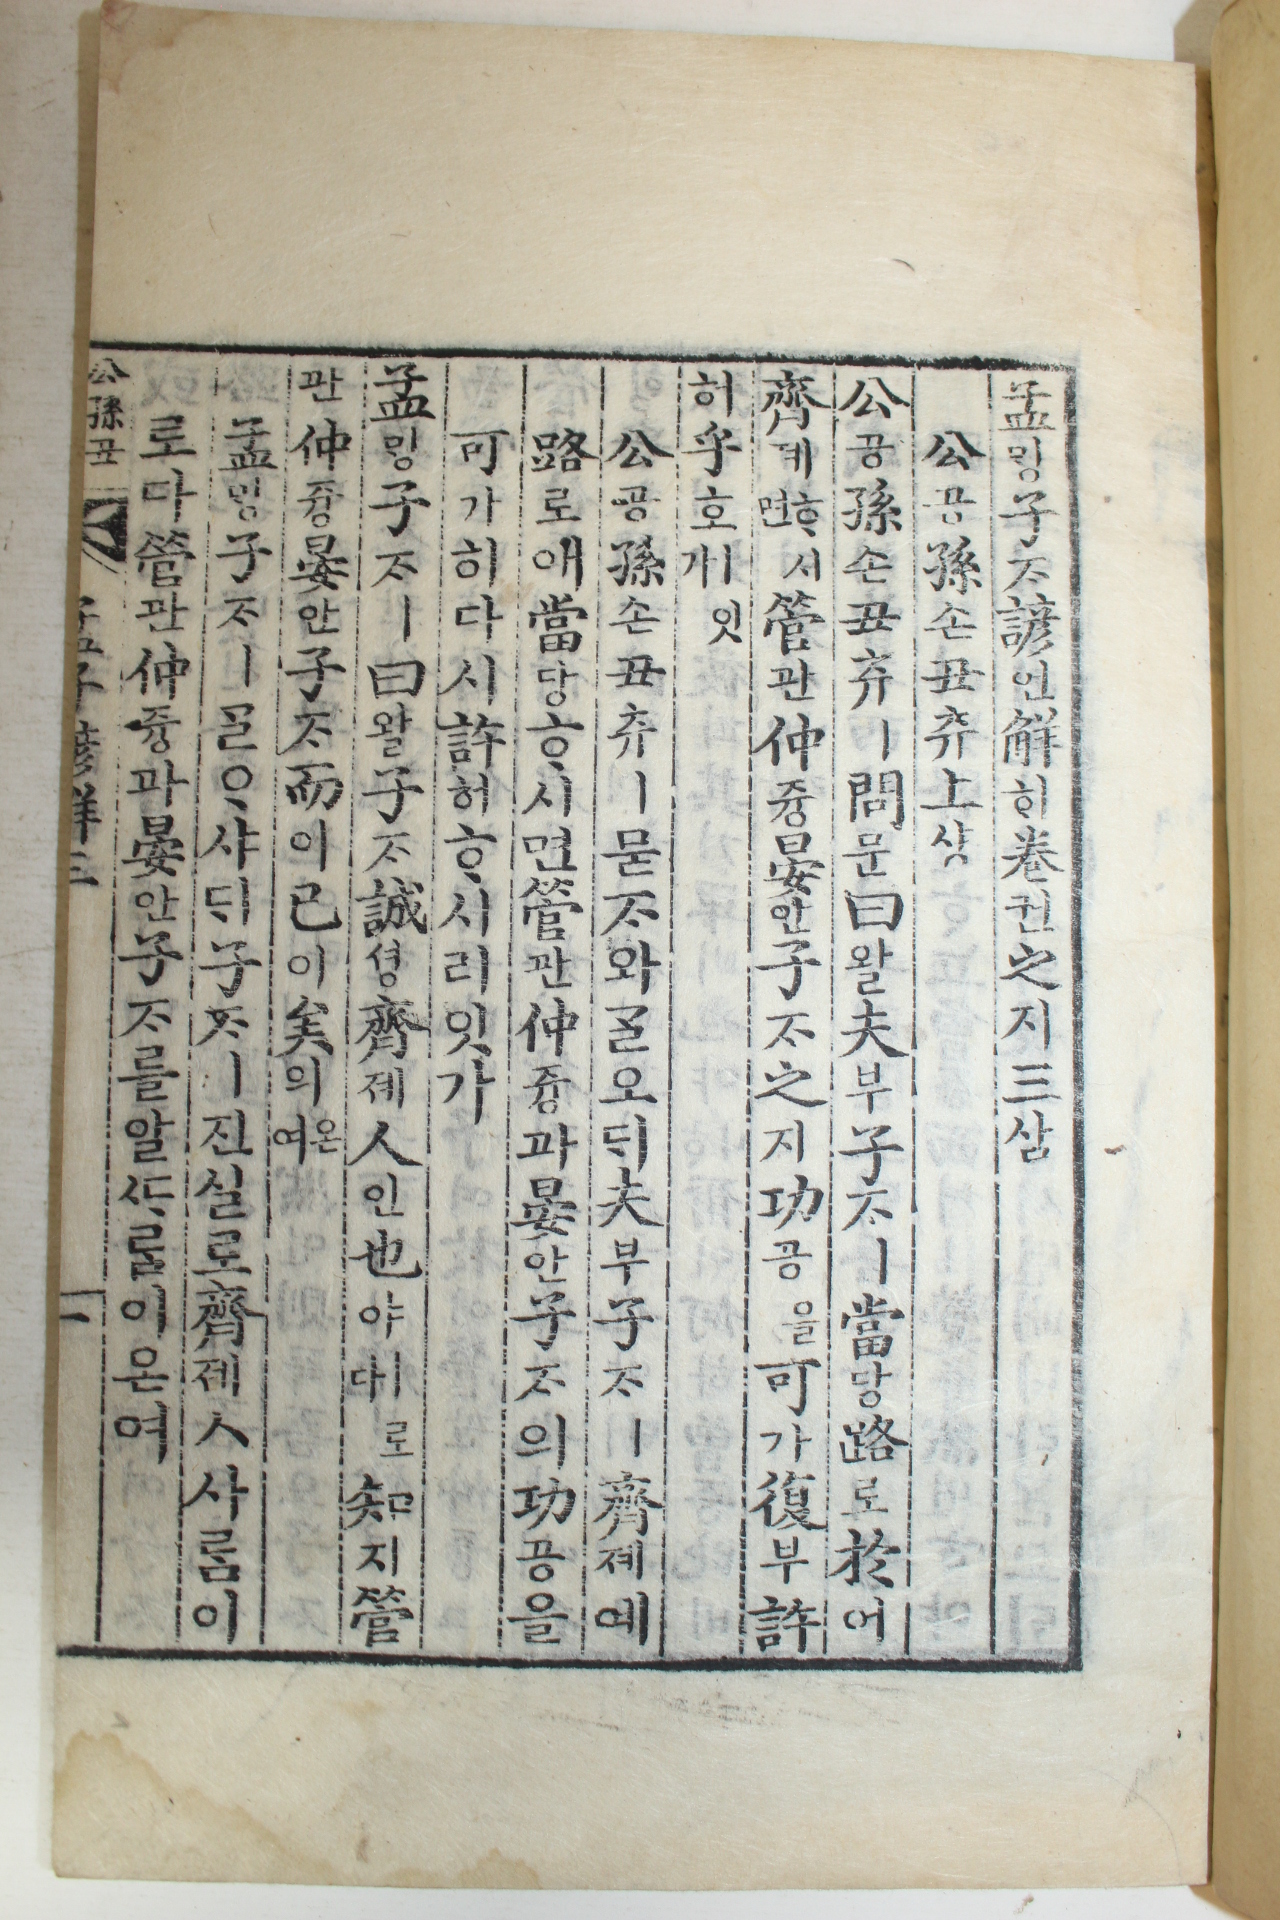 孟ᄆᆡᆼ子ᄌᆞ諺언解ᄒᆡ卷권之지三삼
公공孫손丑츄上샹
公공孫손丑츄ㅣ問문曰왈夫부子ᄌᆞㅣ當당路로於어
齊졔ᄒᆞ시면管관仲듕晏안子ᄌᆞ之지功공을可가復부許
허乎호ㅣ잇가
公공孫손丑츄ㅣ묻ᄌᆞ와ᄀᆞᆯ오ᄃᆡ夫부子ᄌᆞㅣ齊졔예
路로애當당ᄒᆞ시면管관仲듕과晏안子ᄌᆞ의功공을
可가히다시許허ᄒᆞ시리잇가
孟ᄆᆡᆼ子ᄌᆞㅣ曰왈子ᄌᆞ誠셩齊졔人인也야ㅣ로다知지管
관仲듕晏안子ᄌᆞ而이已이矣의온여
孟ᄆᆡᆼ子ᄌᆞㅣᄀᆞᆯᄋᆞ샤ᄃᆡ子ᄌᆞㅣ진실로齊졔ㅅ사ᄅᆞᆷ이
로다管관仲듕과晏안子ᄌᆞ를알ᄯᆞᄅᆞᆷ이온여
公孫丑 孟子諺解三 一